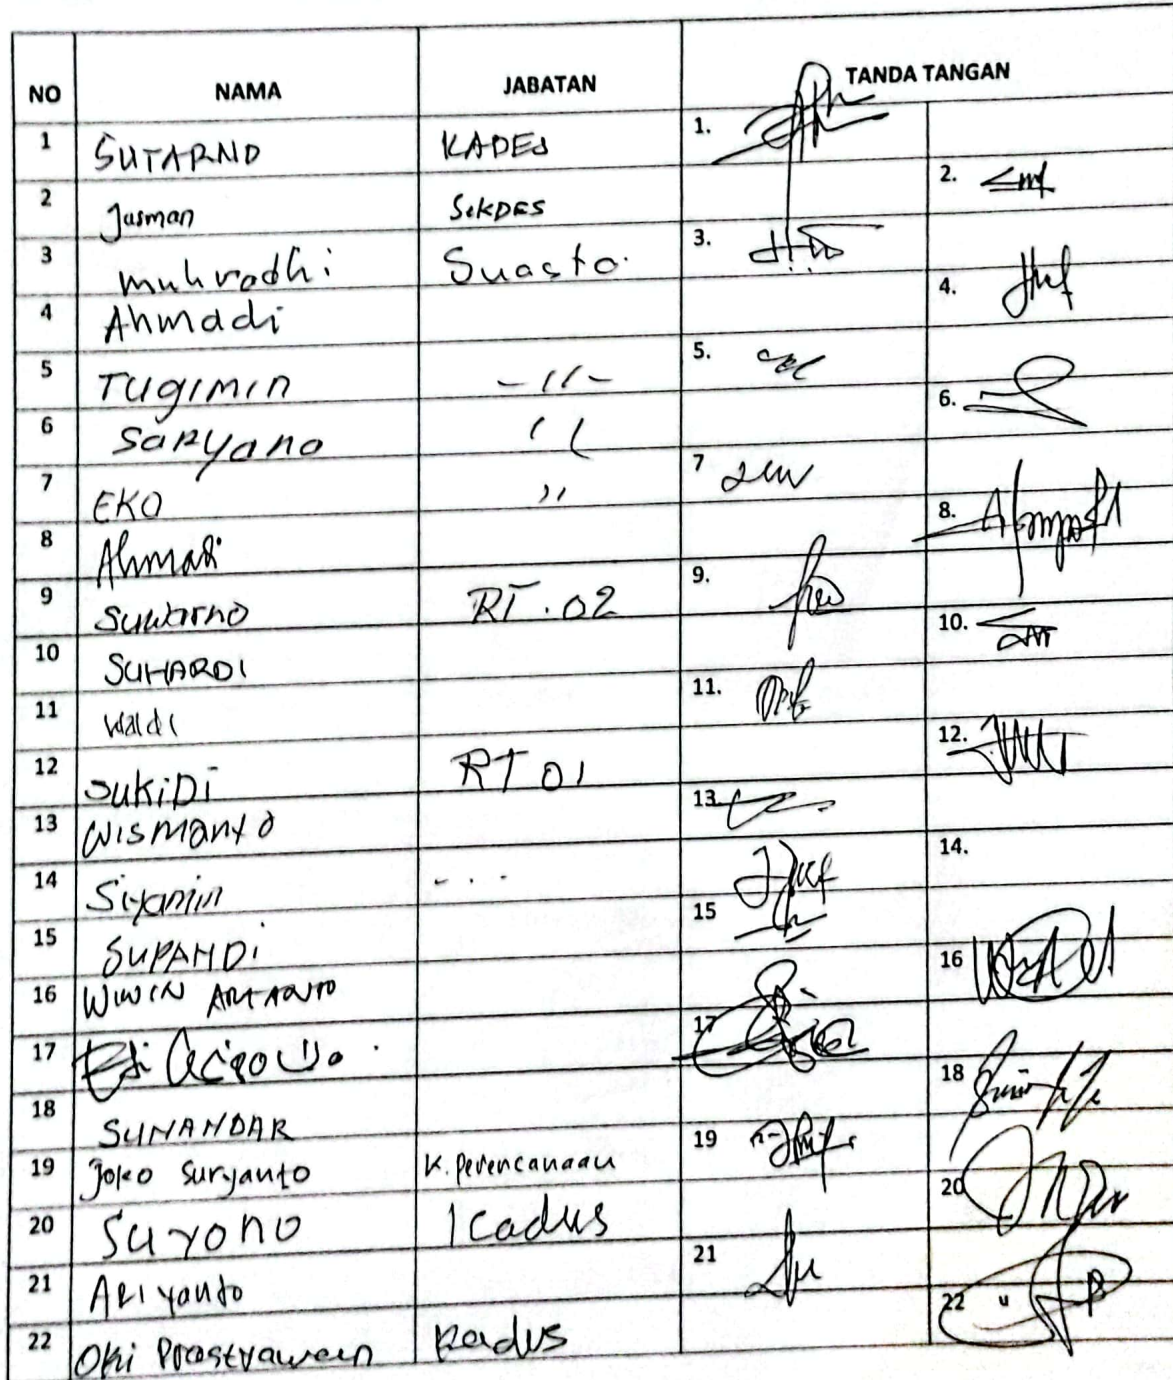 NO NAMA JABATAN TANDA TANGAN
1 SUTARNO KADES 1.
2 Jasman SEKDES 2.
3 muhrodhi Suasta. 3.
4 Ahmadi 4.
5 TUGIMIN -11- 5.
6 SARYANO 11 6.
7 EKO 11 7
8 Ahmadi 8.
9 Suwarno RT.02 9.
10 SUHARDI 10.
11 Waldi 11.
12 SUKIDI RT 01 12.
13 WISMANTO 13.
14 Siyamin - . . . 14.
15 SUPANDI 15
16 WIWIN ARIANTO 16
17 17
18 SUNANDAR 18
19 Joko Suryanto K. Perencanaan 19
20 SUYONO Kadus 20
21 ARIYANTO 21
22 Oki Prastyawan Kadus 22